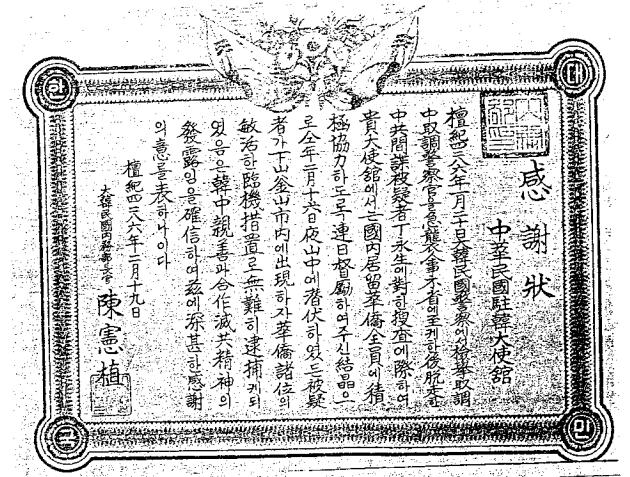 대
한
민
국
感謝狀
中華民國駐韓大使舘
檀紀四二八六年一月二十日大韓民國警察에서檢擧取調
中取調警察官을 人事不省에至케한後脫走한
中共間諜被疑者丁永生에對한搜査에際하여
貴大使舘에서는國內居留華僑全員에積
極協力하도록連日督勵하여주신結晶으
로仝年二月十六日夜山中에潛伏하였든被疑
者가下山釜山市內에出現하자華僑諸位의
敏活한臨機措置로無難히逮捕케되
였음은韓中親善과合作滅共精神의
發露임을確信하여玆에深甚한感謝
의意를表하나이다
檀紀四二八六年二月十九日
大韓民國內務部長官 陳憲植